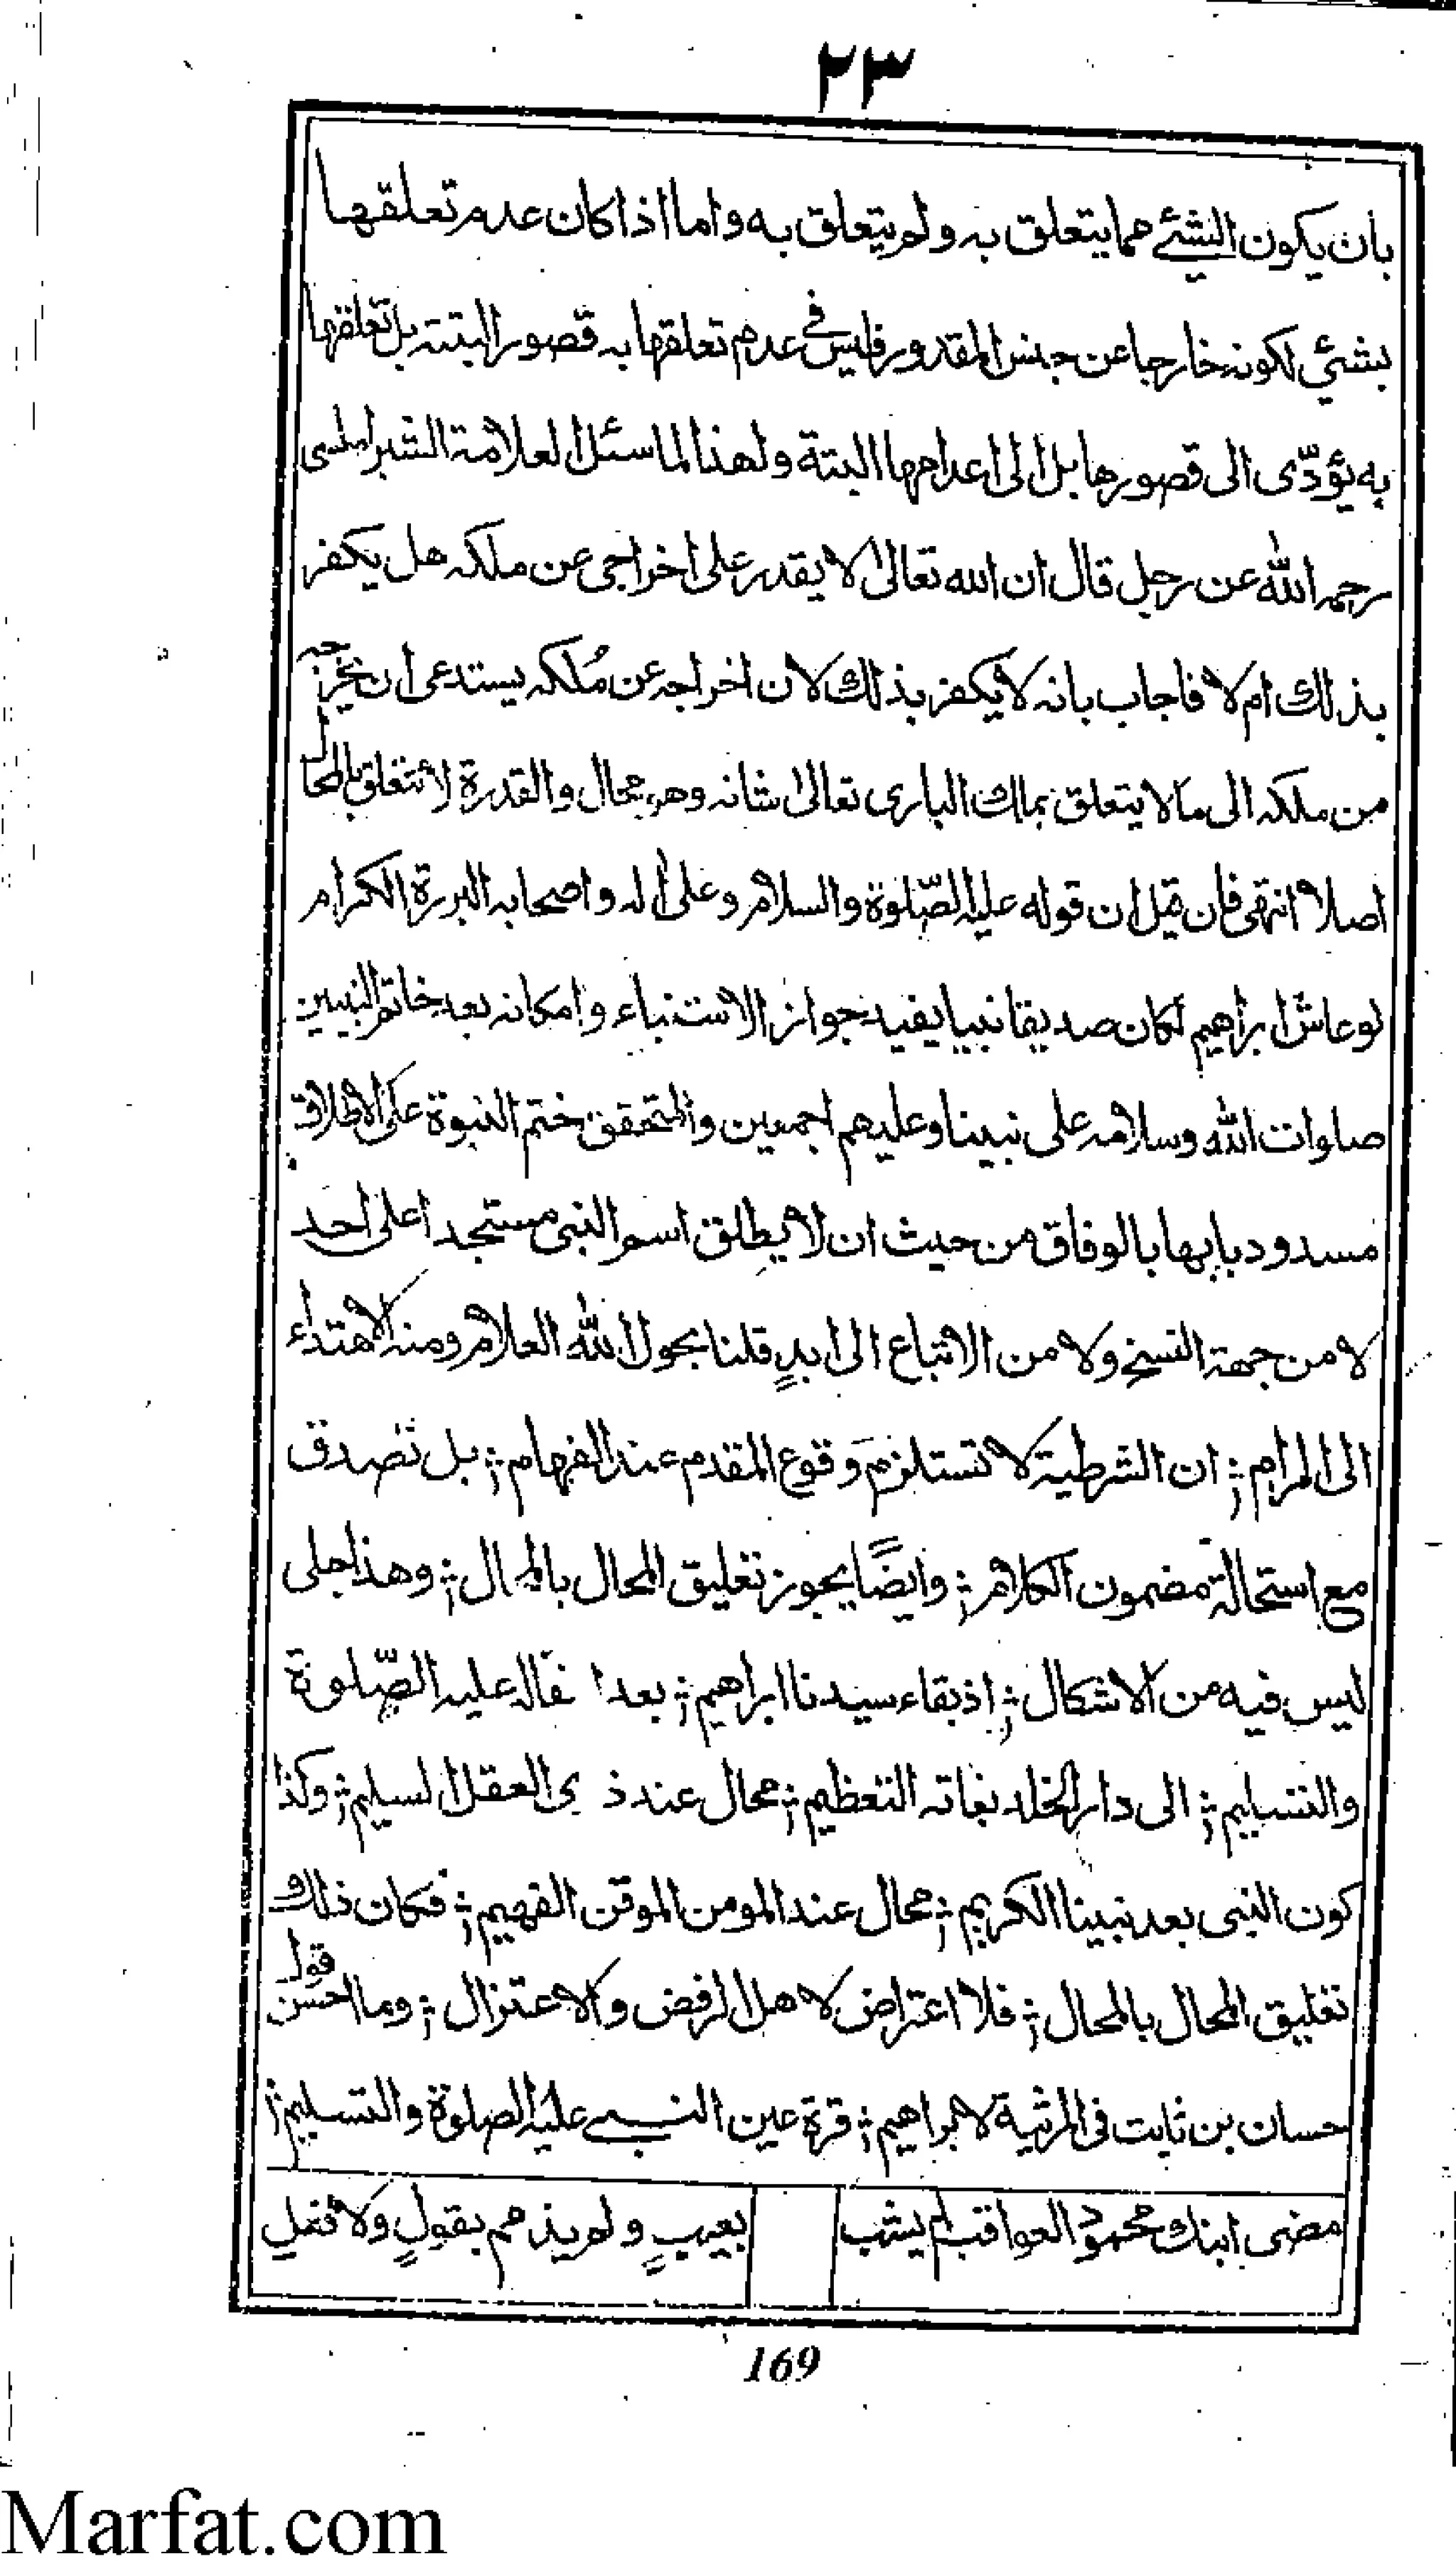 ٢٣
بان يكون الشئ مما يتعلق به ولم يتعلق به واما اذا كان عدم تعلقها
بشئ لكونه خارجا عن جنس المقدور فليس فى عدم تعلقها به قصور البتة بل تعلقها
به يؤدّى الى قصورها بل الى اعدامها البتة ولهذا لما سئل العلامة الشبراملسى
رحمه الله عن رجل قال ان الله تعالى لا يقدر على اخراجى عن ملكه هل يكفر
بذلك ام لا فاجاب بانه لا يكفر بذلك لان اخراجه عن مُلكه يستدعى ان يخرجه
من ملكه الى ما لا يتعلق بملك البارى تعالى شانه وهو محال والقدرة لا تتعلق بالمحال
اصلا انتهى فان قيل ان قوله عليه الصّلوة والسلام وعلى اله واصحابه البررة الكرام
لو عاش ابراهيم لكان صديقا نبيا يفيد جواز الاستنباء وامكانه بعد خاتم النبيين
صلوات الله وسلامه على نبينا وعليهم اجمعين والمتحقق ختم النبوة على الاطلاق
مسدود بابها بالوفاق من حيث ان لا يطلق اسم النبى مستجدا على احد
لا من جهة النسخ ولا من الاتباع الى ابدٍ قلنا بحول الله العلام ومنه الاهتداء
الى المرام ؛ ان الشرطية لا تستلزم وقوع المقدم عند الفهام ؛ بل تصدق
مع استحالة مضمون الكلام ؛ وايضًا يجوز تعليق المحال بالمحال ؛ وهذا جلى
ليس فيه من الاشكال ؛ اذ بقاء سيدنا ابراهيم ؛ بعد ا قاله عليه الصّلوة
والتسليم ؛ الى دار الخلد بغاته التعظيم ؛ محال عند ذى العقل السليم ؛ وكذا
كون النبى بعد نبينا الكريم ؛ محال عند المومن الموقن الفهيم ؛ فكان ذلك
تعليق المحال بالمحال ؛ فلا اعتراض لاهل الرفض والاعتزال ؛ وما احسن قول
حسان بن ثابت فى المرثية لابراهيم ؛ قرة عين النبى عليه الصلوة والتسليم ؛
مضى ابنك محمودُ العواقب لم يشب بعيبٍ ولم يذمم بقولٍ ولا فعل
169
Marfat.com